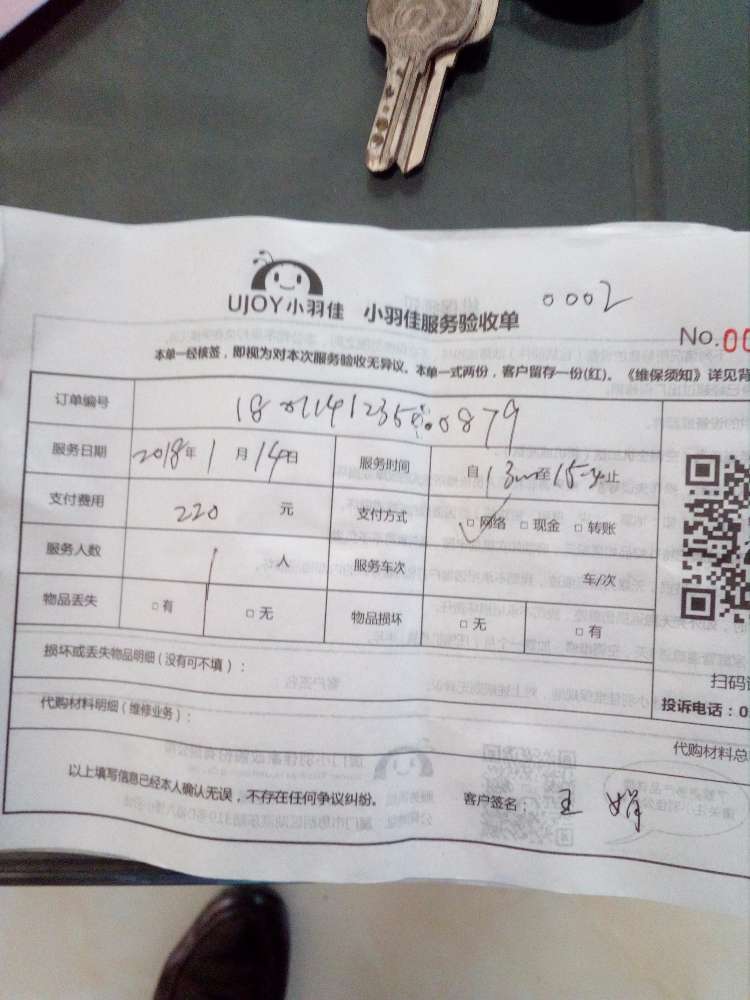 UJOY小羽佳 小羽佳服务验收单 0002
No.00
本单一经核签，即视为对本次服务验收无异议。本单一式两份，客户留存一份(红)。《维保须知》详见背
订单编号
服务日期 2018年1月14日 服务时间 自13 至15 止
支付费用 220 元 支付方式 □网络 □现金 □转账
服务人数 1 人 服务车次 车/次
物品丢失 □有 □无 物品损坏 □无 □有
损坏或丢失物品明细(没有可不填)：
扫码
投诉电话：0
代购材料明细(维修业务)：
代购材料总
以上填写信息已经本人确认无误，不存在任何争议纠纷。 客户签名：王娟